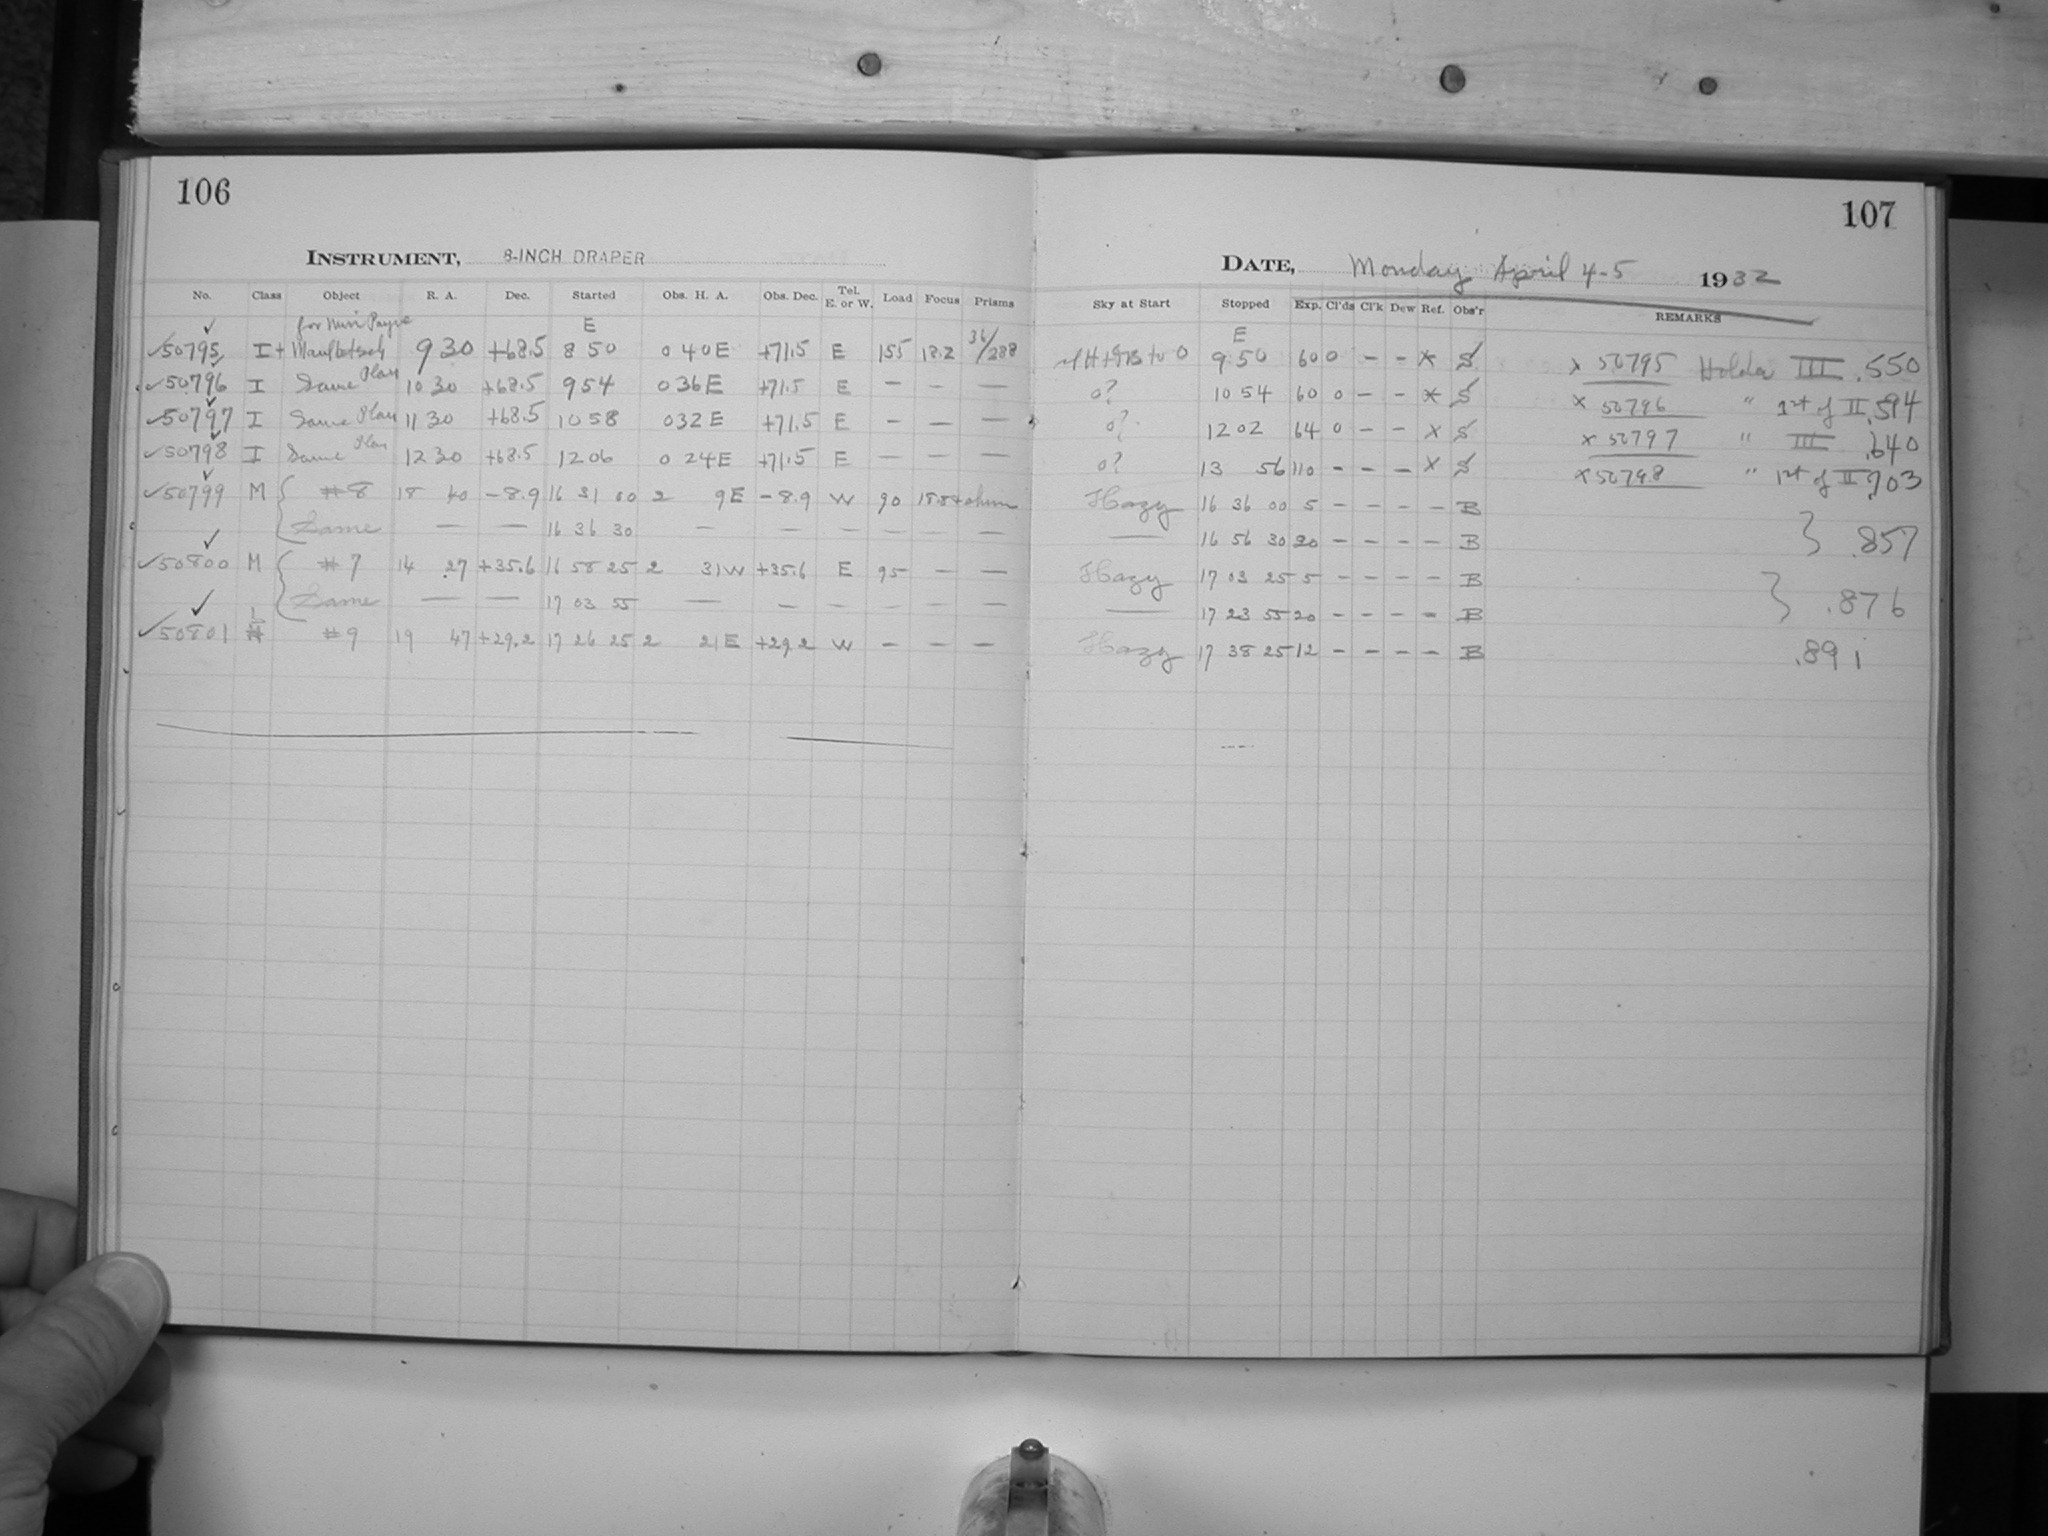 106
INSTRUMENT, 8-INCH DRAPER
No. Class Object R. A. Dec. Started Obs. H. A. Obs. Dec. Tel. E. or W. Load Focus Prisms
for Miss Payne E
50795 I+ 9 30 +68.5 8 50 0 40 E +71.5 E 155 18.2
50796 I Same Plan 10 30 +68.5 9 54 0 36 E +71.5 E — — —
50797 I Same Plan 11 30 +68.5 10 58 0 32 E +71.5 E — — —
50798 I Same Plan 12 30 +68.5 12 06 0 24 E +71.5 E — — —
50799 M #8 18 40 -8.9 16 31 00 2 9 E -8.9 W 90
Same — — 16 36 30 — — — — — —
50800 M #7 14 27 +35.6 16 58 25 2 31 W +35.6 E 95 — —
Same — — 17 03 55 — — — — — —
50801 L #9 19 47 +29.2 17 26 25 2 21 E +29.2 W — — —
107
DATE, Monday April 4-5 1932
Sky at Start Stopped Exp. Cl'ds Cl'k Dew Ref. Obs'r REMARKS
E
9 50 60 0 — — x S x 50795 Holder III .550
0? 10 54 60 0 — — x S x 50796 " 1st of II .594
0? 12 02 64 0 — — x S x 50797 " III .640
0? 13 56 110 — — — x S x 50798 " 1st of II .703
Hazy 16 36 00 5 — — — — B
— 16 56 30 20 — — — — B } .857
Hazy 17 03 25 5 — — — — B
— 17 23 55 20 — — — — B } .876
Hazy 17 38 25 12 — — — — B .891